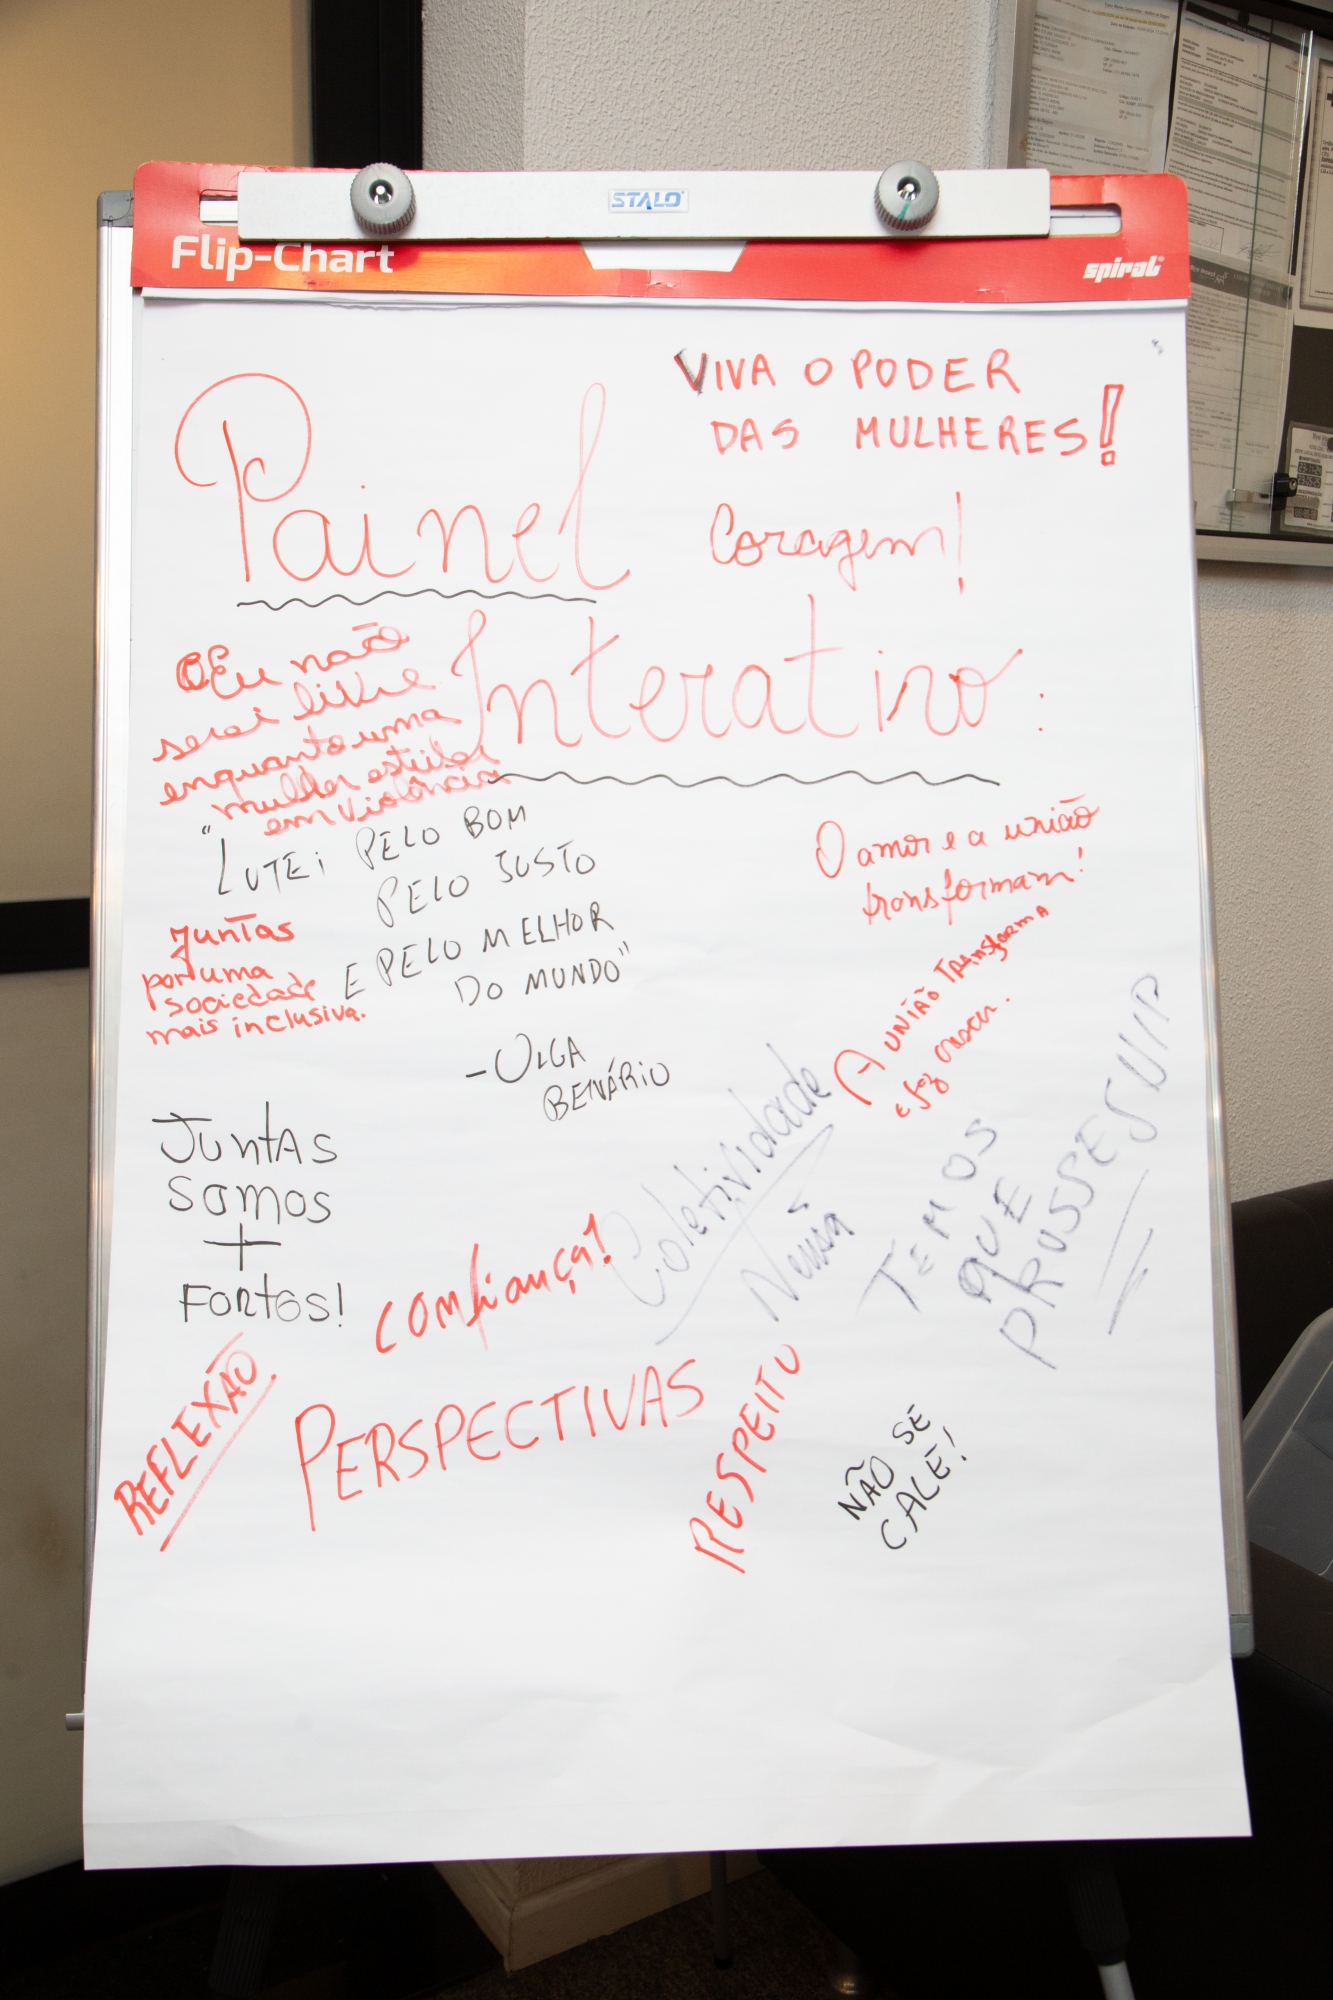 STALO
Flip-Chart
spiral
VIVA O PODER
DAS MULHERES!
Painel
Coragem!
Interativo:
Eu não
serei livre
enquanto uma
mulher estiver
em violência
"LUTEi PELO BOM
PELO JUSTO
E PELO MELHOR
DO MUNDO"
-OLGA
BENÁRIO
Juntas
por uma
sociedade
mais inclusiva.
O amor e a união
transformam!
A UNIÃO TRANSFORMA
e faz crescer.
Coletividade
TEMOS
QUE
PROSSESUIR
JuntAS
SOMOS
+
FORtes!
confiança!
REFLEXÃO
PERSPECTIVAS
RESPEITO
NÃO SE
CALE!